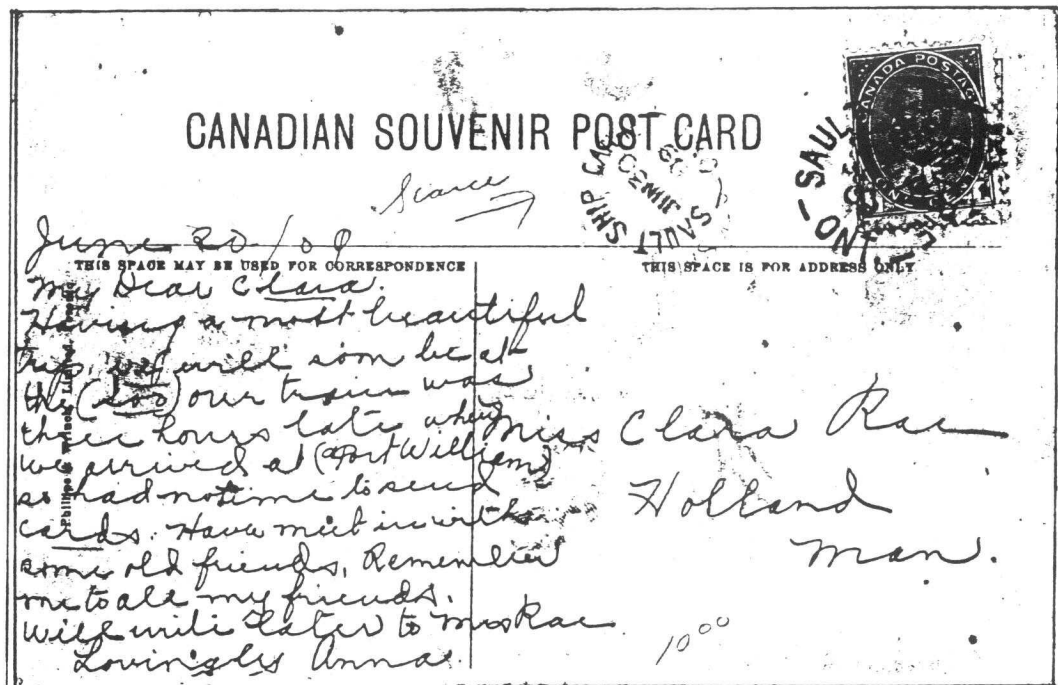 CANADIAN SOUVENIR POST CARD
CANADA POSTAGE
SAULT SHIP CANAL
Scarce
June 20/08
THIS SPACE MAY BE USED FOR CORRESPONDENCE
THIS SPACE IS FOR ADDRESS ONLY
My Dear Clara.
Having a most beautiful
trip, we will soon be at
the (soo) our train was
three hours late when
we arrived at (Fort William)
so had no time to send
cards. Have met in with
some old friends, Remember
me to all my friends.
will write later to Mrs Rae
Lovingly Anna.
Miss Clara Rae
Holland
Man.
10 00